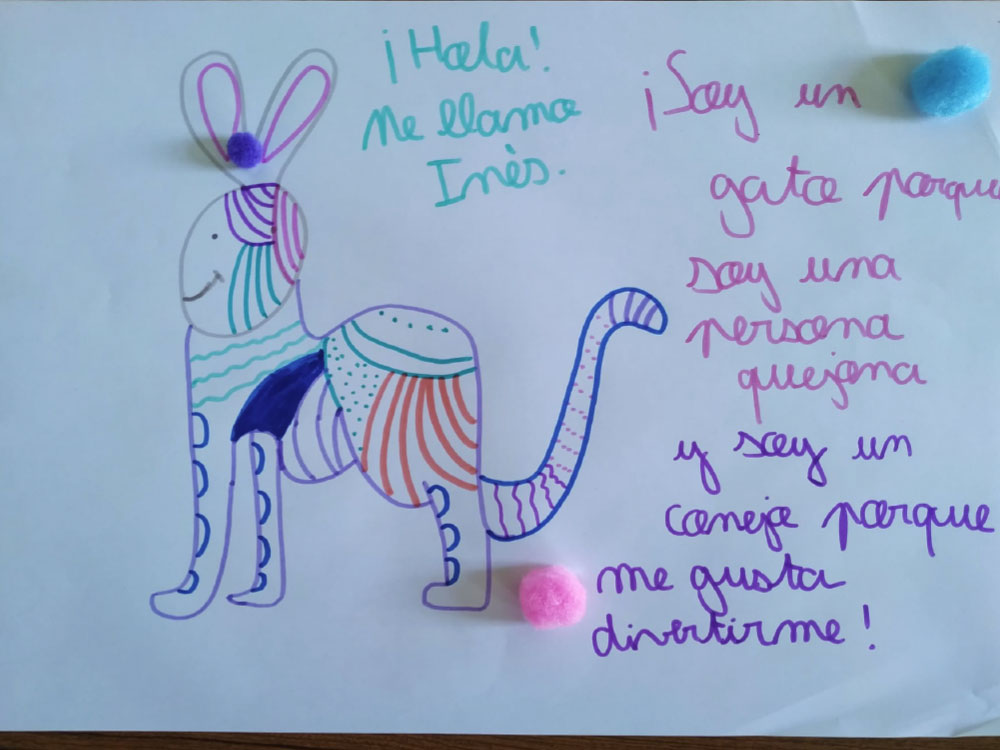 ¡Hola!
Me llamo
Inès.
¡Soy un
gato porque
soy una
persona
quejona
y soy un
conejo porque
me gusta
divertirme!